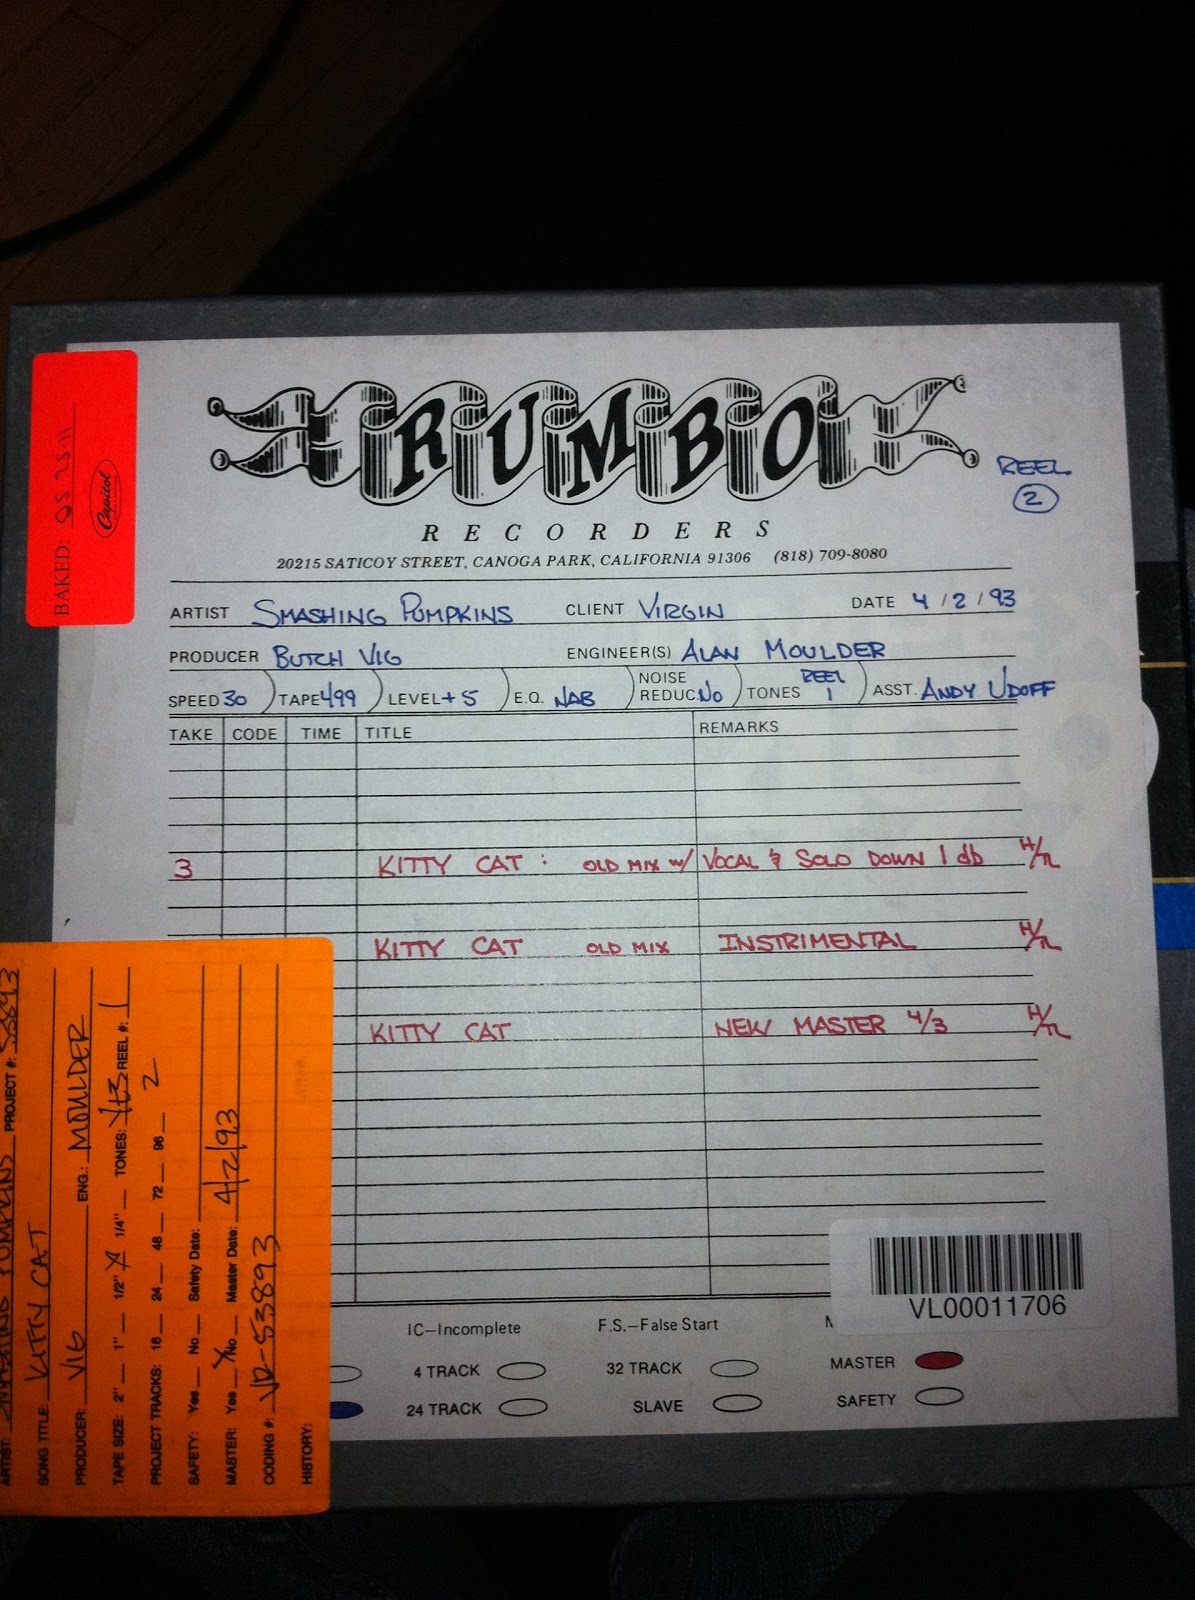 RUMBO
REEL
2
RECORDERS
20215 SATICOY STREET, CANOGA PARK, CALIFORNIA 91306 (818) 709-8080
ARTIST SMASHING PUMPKINS CLIENT VIRGIN DATE 4/2/93
PRODUCER BUTCH VIG ENGINEER(S) ALAN MOULDER
SPEED 30 TAPE 499 LEVEL +5 E.Q. NAB NOISE REDUC. NO TONES REEL 1 ASST. ANDY UDOFF
TAKE CODE TIME TITLE REMARKS
3 KITTY CAT : OLD MIX W/ VOCAL & SOLO DOWN 1 db
KITTY CAT OLD MIX INSTRIMENTAL
KITTY CAT NEW MASTER 4/3
VL00011706
IC—Incomplete F.S.—False Start M
4 TRACK 32 TRACK MASTER
24 TRACK SLAVE SAFETY
BAKED: 05 25-11
Capitol
ARTIST: SMASHING PUMPKINS PROJECT #: 53893
SONG TITLE: KITTY CAT
PRODUCER: VIG ENG.: MOULDER
TAPE SIZE: 2" 1" 1/2" X 1/4" TONES: YES REEL #: 1
PROJECT TRACKS: 16 24 48 72 96 2
SAFETY: Yes No Safety Date:
MASTER: Yes X No Master Date: 4/2/93
CODING #: VR-53893
HISTORY: